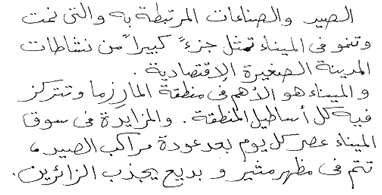 الصيد والصناعات المرتبطة به والتى نمت
وتنمو فى الميناء تمثل جزءً كبيراً من نشاطات
المدينة الصغيرة الاقتصادية .
والميناء هو الأهم فى منطقة المارزما وتتركز
فيه كل أساطيل المنطقة . والمزايدة فى سوق
الميناء عصر كل يوم بعد عودة مراكب الصيد ،
تتم فى مظهر مثير و بديع يجذب الزائرين .